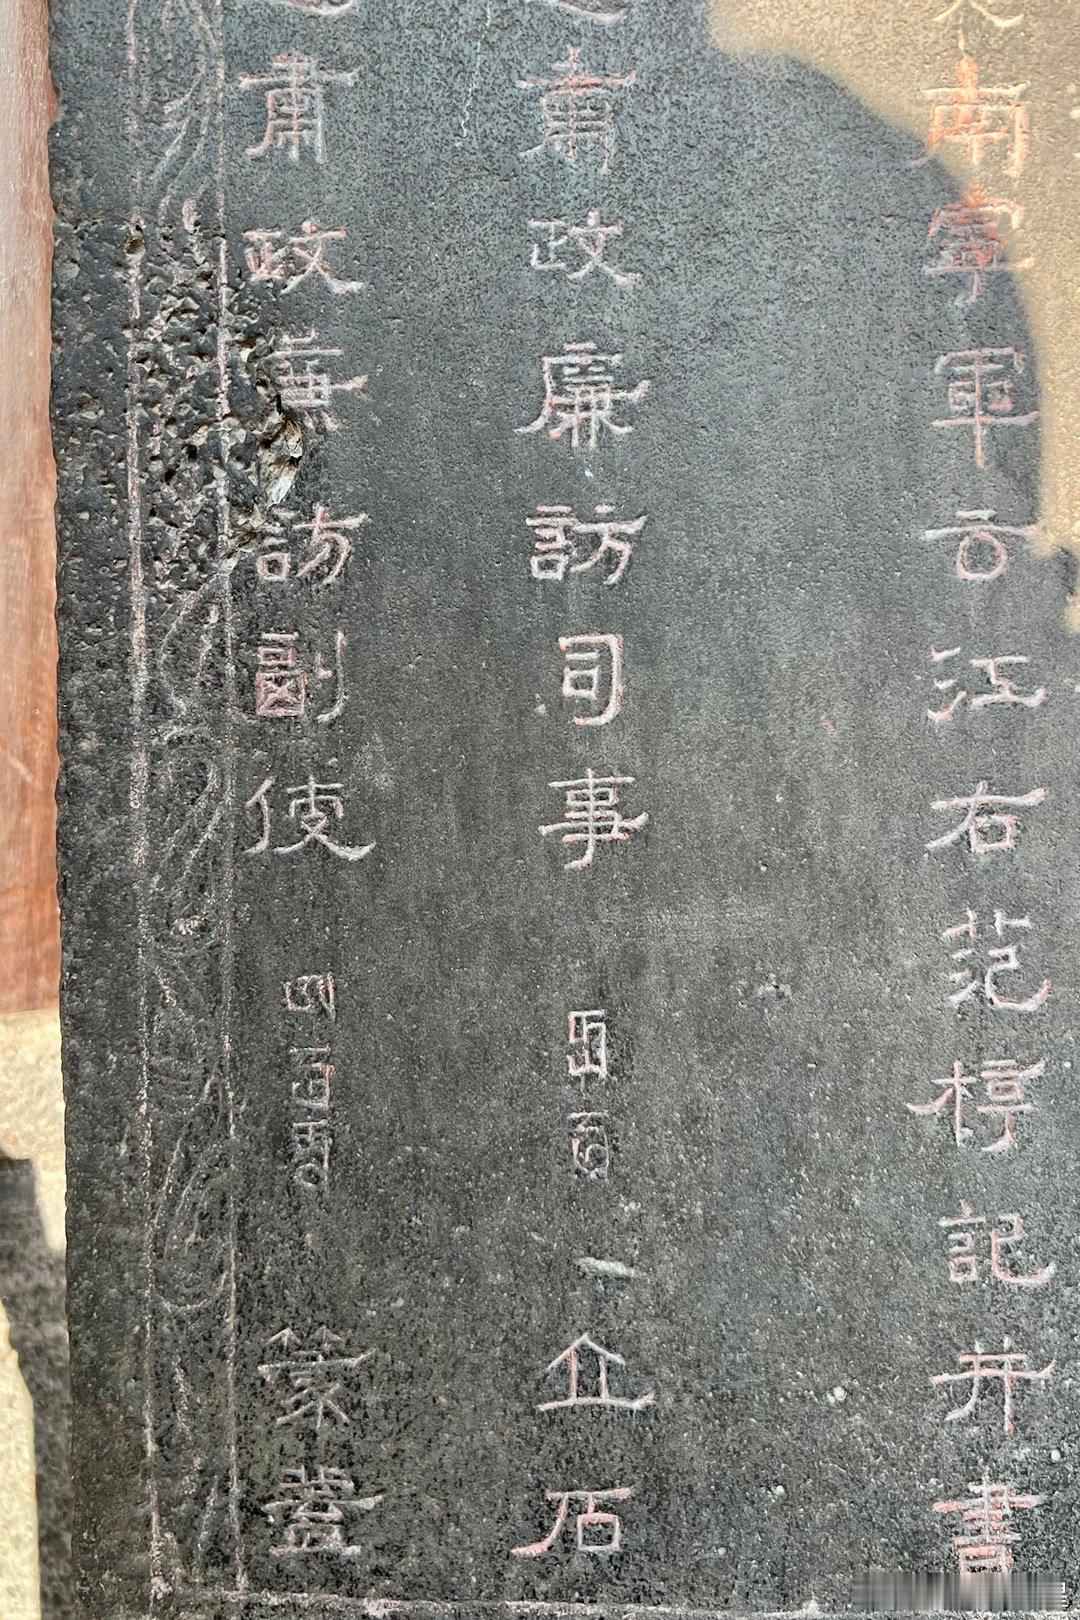 南寧軍云江右范梈記并書
肅政廉訪司事 立石
肅政廉訪副使 篆蓋